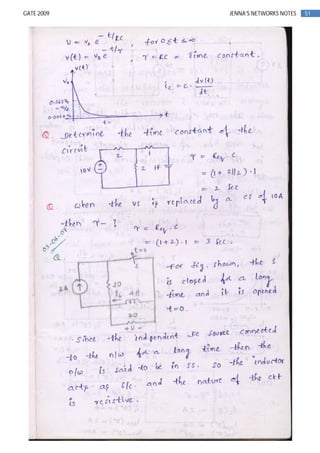 GATE 2009 JENNA'S NETWORKS NOTES 51
v = v₀ e^-t/RC , for 0 ≤ t ≤ ∞
v(t) = v₀ e^-t/τ , τ = RC = Time constant.
v(t)
v₀
i_c = C · dv(t)/dt
t
Q. Determine the time constant of the
circuit
2 1
10V 2 1F
τ = Req · C
= (1 + 2||2) · 1
= 2 sec
Q when the vs is replaced by a cs of 10A
then τ - ?
τ = Req · C
= (1+2) · 1 = 3 sec.
03-06-09
Q.
t=0
2A 3Ω
i_L 4H
2Ω
+ v -
For fig. shown, the S
is closed for a long
time and it is opened
t=0.
Since the independent DC source connected
to the n/w for a long time then the
n/w is said to be in ss. so the inductor
acts as s/c. and the nature of the ckt
is resistive.